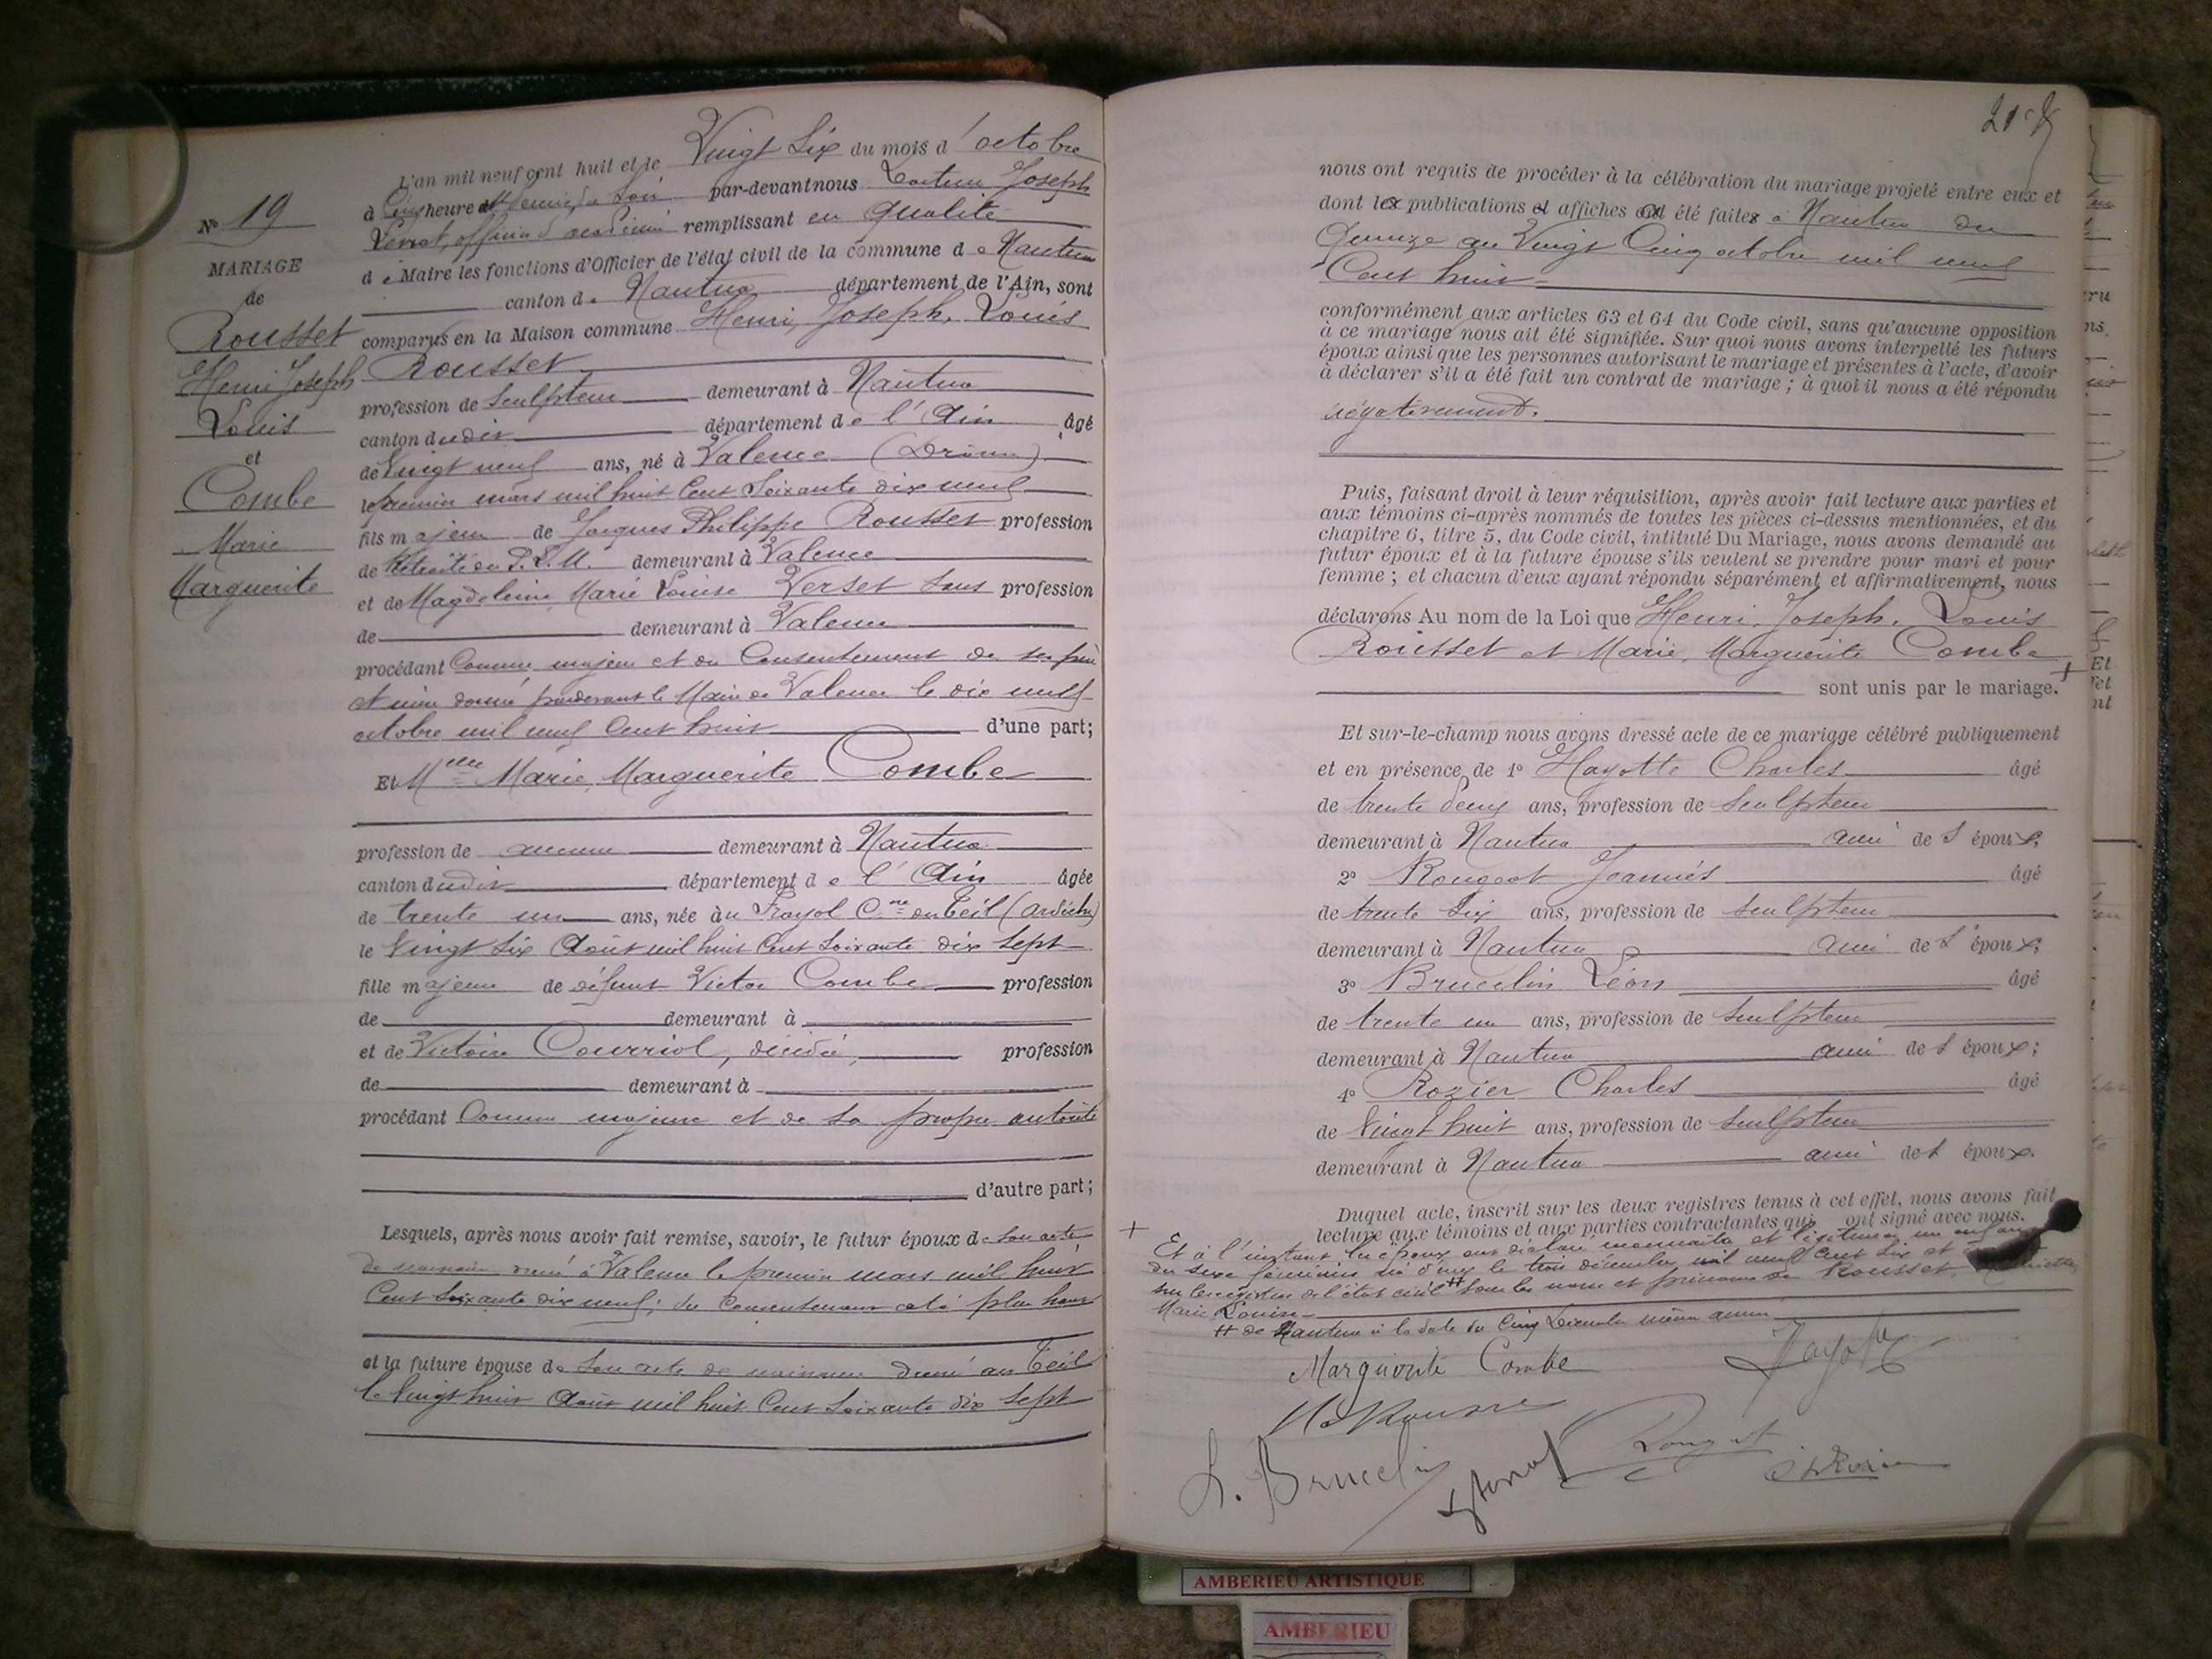 L'an mil neuf cent huit et le Vingt Six du mois d'octobre
à Cinq heure et demie du Soir par-devant nous Docteur Joseph
officier d'académie remplissant en qualité
de Maire les fonctions d'Officier de l'état civil de la commune de Nantua
canton de Nantua département de l'Ain, sont
comparus en la Maison commune Henri, Joseph, Louis
Rousset
profession de Sculpteur demeurant à Nantua
canton dudit département de l'Ain âgé
de Vingt neuf ans, né à Valence (Drôme)
le premier mars mil huit Cent Soixante dix neuf
fils majeur de Jacques Philippe Rousset profession
de Retraité du P.L.M. demeurant à Valence
et de Magdeleine Marie Louise Verset Sans profession
de demeurant à Valence
procédant Comme majeur et du Consentement de ses père
et mère donné pardevant le Maire de Valence le dix neuf
octobre mil neuf Cent huit d'une part;
Et Melle Marie, Marguerite Combe
profession de aucune demeurant à Nantua
canton dudit département de l'Ain âgée
de trente un ans, née au Frayol Cne du Teil (Ardèche)
le Vingt Six Août mil huit Cent Soixante dix Sept
fille majeure de défunt Victor Combe profession
de demeurant à
et de Victoire Courriol, décédée, profession
de demeurant à
procédant Comme majeure et de Sa propre autorité
d'autre part;
Lesquels, après nous avoir fait remise, savoir, le futur époux de Son acte
de naissance dressé à Valence le premier mars mil huit
Cent Soixante dix neuf; du Consentement relaté plus haut
et la future épouse de Son acte de naissance dressé au Teil
le Vingt huit Août mil huit Cent Soixante dix Sept
No 19
MARIAGE
de
Rousset
Henri Joseph
Louis
et
Combe
Marie
Marguerite
nous ont requis de procéder à la célébration du mariage projeté entre eux et
dont les publications et affiches ont été faites à Nantua du
Quinze au Vingt Cinq octobre mil neuf
Cent huit
conformément aux articles 63 et 64 du Code civil, sans qu'aucune opposition
à ce mariage nous ait été signifiée. Sur quoi nous avons interpellé les futurs
époux ainsi que les personnes autorisant le mariage et présentes à l'acte, d'avoir
à déclarer s'il a été fait un contrat de mariage ; à quoi il nous a été répondu
négativement.
Puis, faisant droit à leur réquisition, après avoir fait lecture aux parties et
aux témoins ci-après nommés de toutes les pièces ci-dessus mentionnées, et du
chapitre 6, titre 5, du Code civil, intitulé Du Mariage, nous avons demandé au
futur époux et à la future épouse s'ils veulent se prendre pour mari et pour
femme ; et chacun d'eux ayant répondu séparément et affirmativement, nous
déclarons Au nom de la Loi que Henri, Joseph, Louis
Rousset et Marie, Marguerite Combe
sont unis par le mariage. +
Et sur-le-champ nous avons dressé acte de ce mariage célébré publiquement
et en présence de 1o Hayotte Charles âgé
de trente deux ans, profession de Sculpteur
demeurant à Nantua ami de l'époux;
2o Rougeot Joannès âgé
de trente Six ans, profession de Sculpteur
demeurant à Nantua ami de l'époux;
3o Brucelin Léon âgé
de trente un ans, profession de Sculpteur
demeurant à Nantua ami de l'époux;
4o Rozier Charles âgé
de Vingt huit ans, profession de Sculpteur
demeurant à Nantua ami de l'époux.
Duquel acte, inscrit sur les deux registres tenus à cet effet, nous avons fait
lecture aux témoins et aux parties contractantes qui ont signé avec nous.
+ Et à l'instant les époux ont déclaré reconnaître et légitimer un enfant
du Sexe féminin né d'eux le trois décembre mil neuf Cent Six et
sur les registres de l'état civil # sous les nom et prénoms de Rousset,
Marie Louise
# de Nantua à la date du Cinq Décembre même année
Marguerite Combe
L. Brucelin
AMBERIEU ARTISTIQUE
AMBERIEU